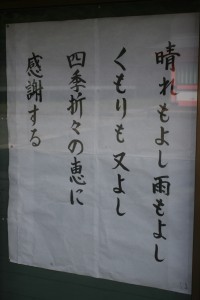 晴れもよし雨もよし
くもりも又よし
四季折々の恵に
感謝する